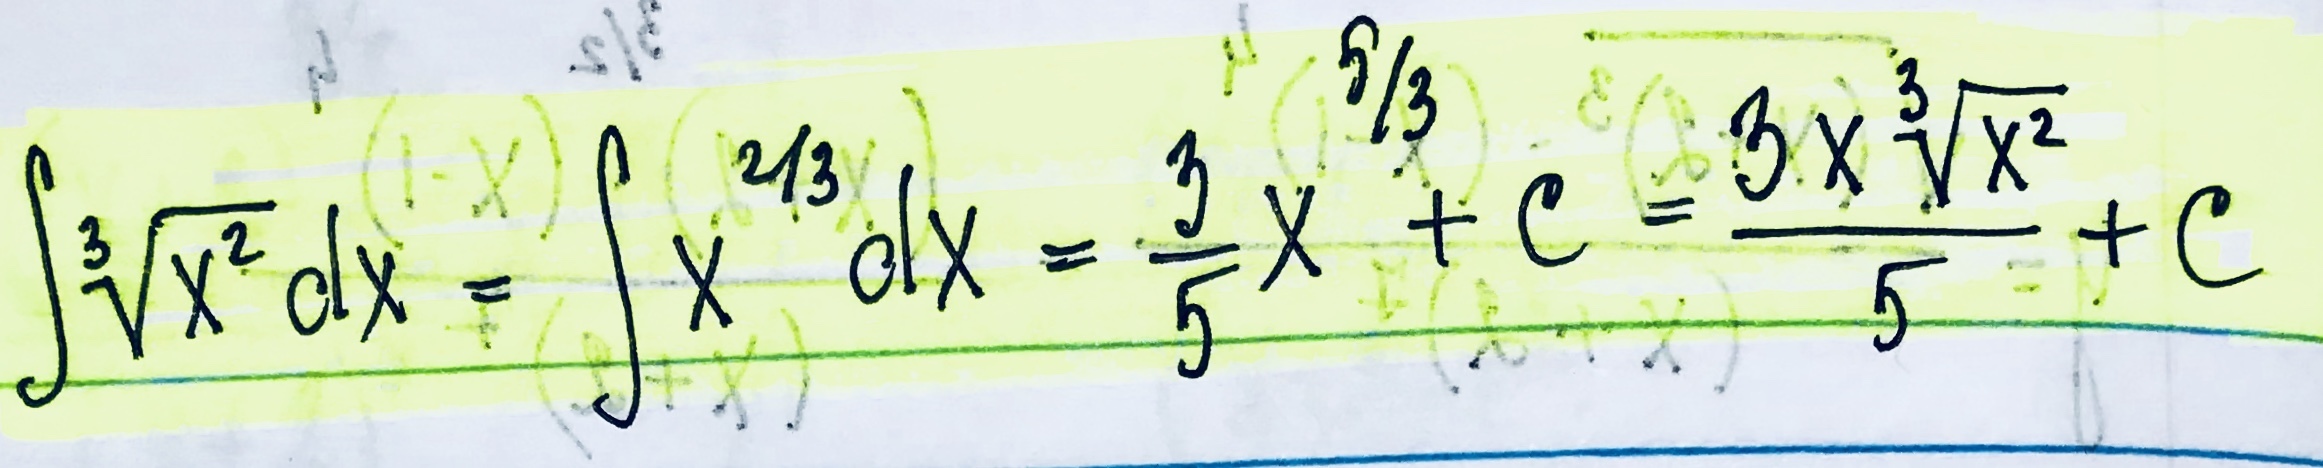 ∫ ∛x² dx = ∫ x^{2/3} dx = 3/5 x^{5/3} + C = 3x ∛x² / 5 + C